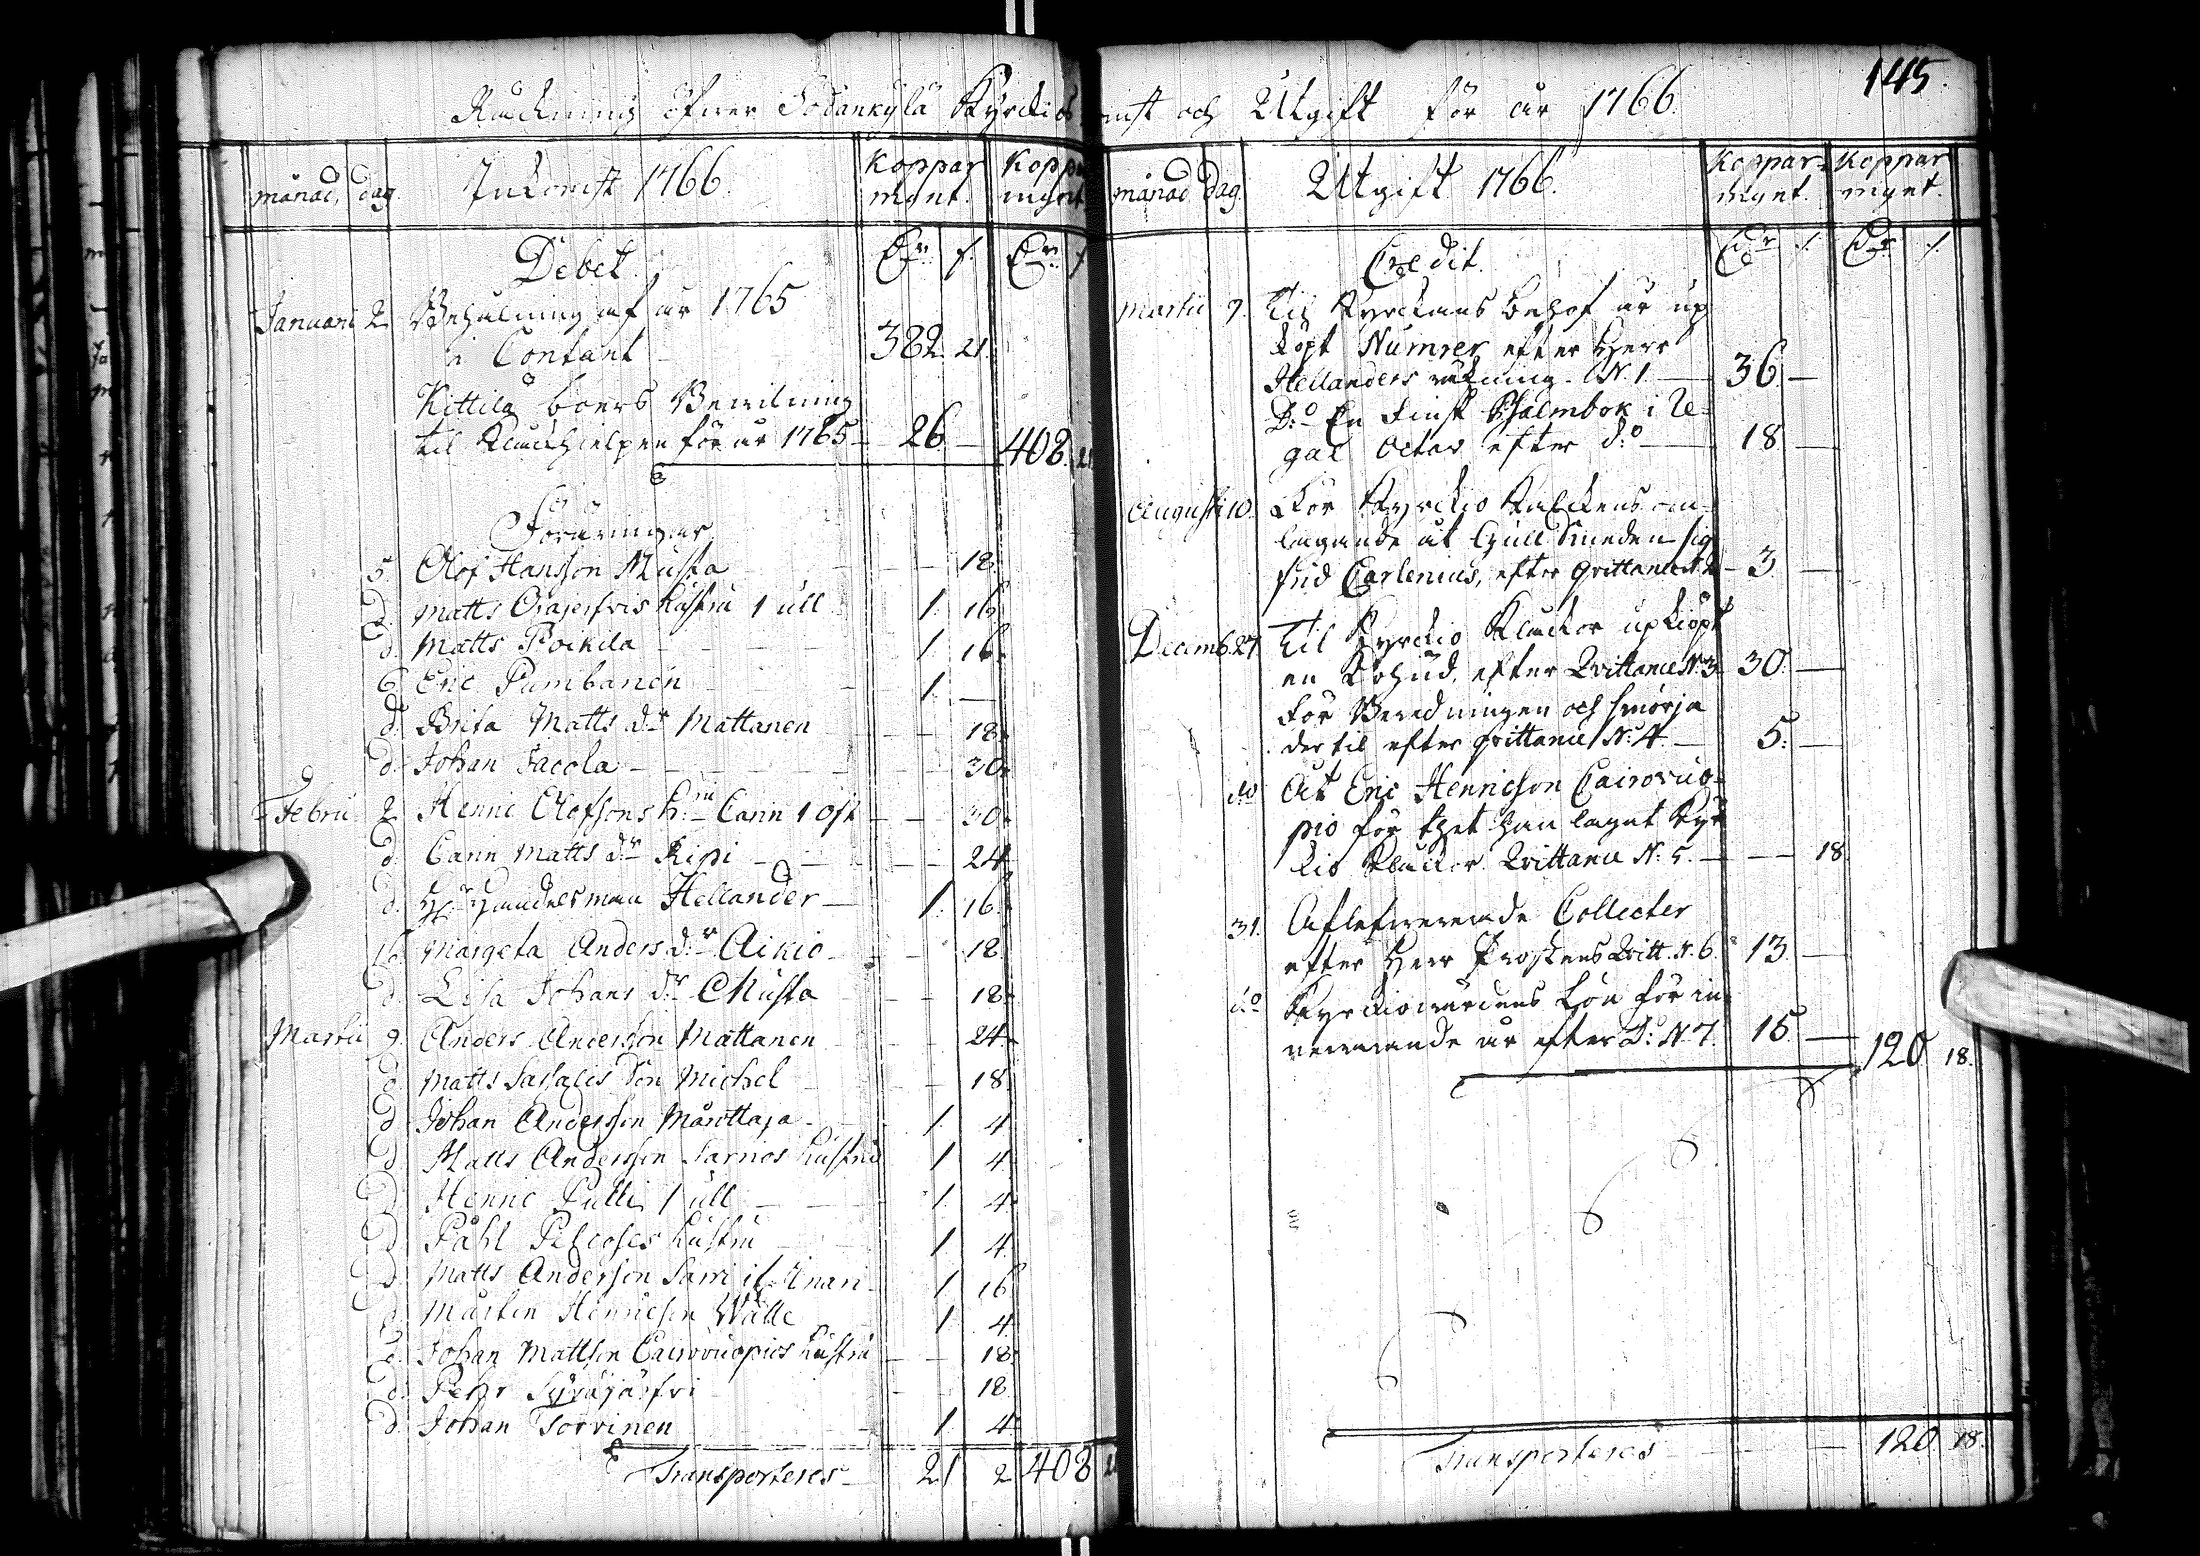 145.
Räckning öfwer Sodankylä Kyrckios
omst och Utgift för år 1766.
månad. dag. Inkomst 1766. Koppar mynt. Koppar mynt.
Debet.
Januari 2. Behålning af år 1765
i Contant 382. 21.
Kittilä boers Bewilning
til Klåckhielpen för år 1765 26. — 408. 21
Föräringar
5. Olof Hansson Musta — — 18.
d. Matts Orajerfvis hustru 1 ull 1. 16.
d. Matts Poikela — 1. 16.
6. Eric Pumbanen — 1. —
d. Brita Matts dr Mattanen — — 18.
d. Johan Jacola — — 30.
Februi 2. Henric Olofsons h:ru Carin 1 ost — — 30.
d. Carin Matts dr Kipi — — 24.
d. Hr Handelsman Hellander — 1. 16.
16. Margeta Anders dr Aikio — — 18.
d. Lisa Johans dr Musta — — 18.
Martii 9. Anders Andersson Mattanen 24.
d. Matts Sassalis Son Michel — 18.
d. Johan Andersson Mårottaja 1. 4.
d. Matts Andersson Sarrios hustru 1. 4.
d. Henric Pulli 1 ull — 1. 4.
d. Påhl Pelcoses hustru 1. 4.
d. Matts Anderson Sarri if. Enari 1. 16.
d. Mårten Henricson Wälle 1. 4.
d. Johan Mattson Cairovuopios hustru — — 18.
d. Pehr Syväjärfvi — — 18.
d. Johan Torvinen 1. 4.
Transporteres 21. 2. 408. 21
månad dag. Utgift 1766. Koppar mynt. Koppar mynt.
Credit.
Martii 9. Til Kyrckans behof är up
köpt Numrer efter Herr
Hellanders räkning. N. 1. — 36. —
D:o En Finsk Psalmbok i Re-
gal Octav efter d:o — 18. —
Augusti 10. För Kyrckio Kalckens om-
lagande åt Gull Smeden Sig
frid Carlenius, efter qvittance N 2 3. —
Decemb. 27. Til Kyrckio Kluckor upkiöpt
en Kohud, efter Qvittance N. 3. 30. —
För Beredningen och smörja
der til efter qvittance N: 4. — 5. —
do At Eric Henricson Cairovuo-
pio för thet han lagat Kyr
kio Kluckor Qvittance N: 5. — — 18.
31. Aflefwererade Collecter
efter Herr Prostens Qvitt. N. 6. 13. —
do Kyrckiowärdens Lön för in
newarande år efter D:o N 7. 15. — 120. 18.
Transporteres — — 120. 18.